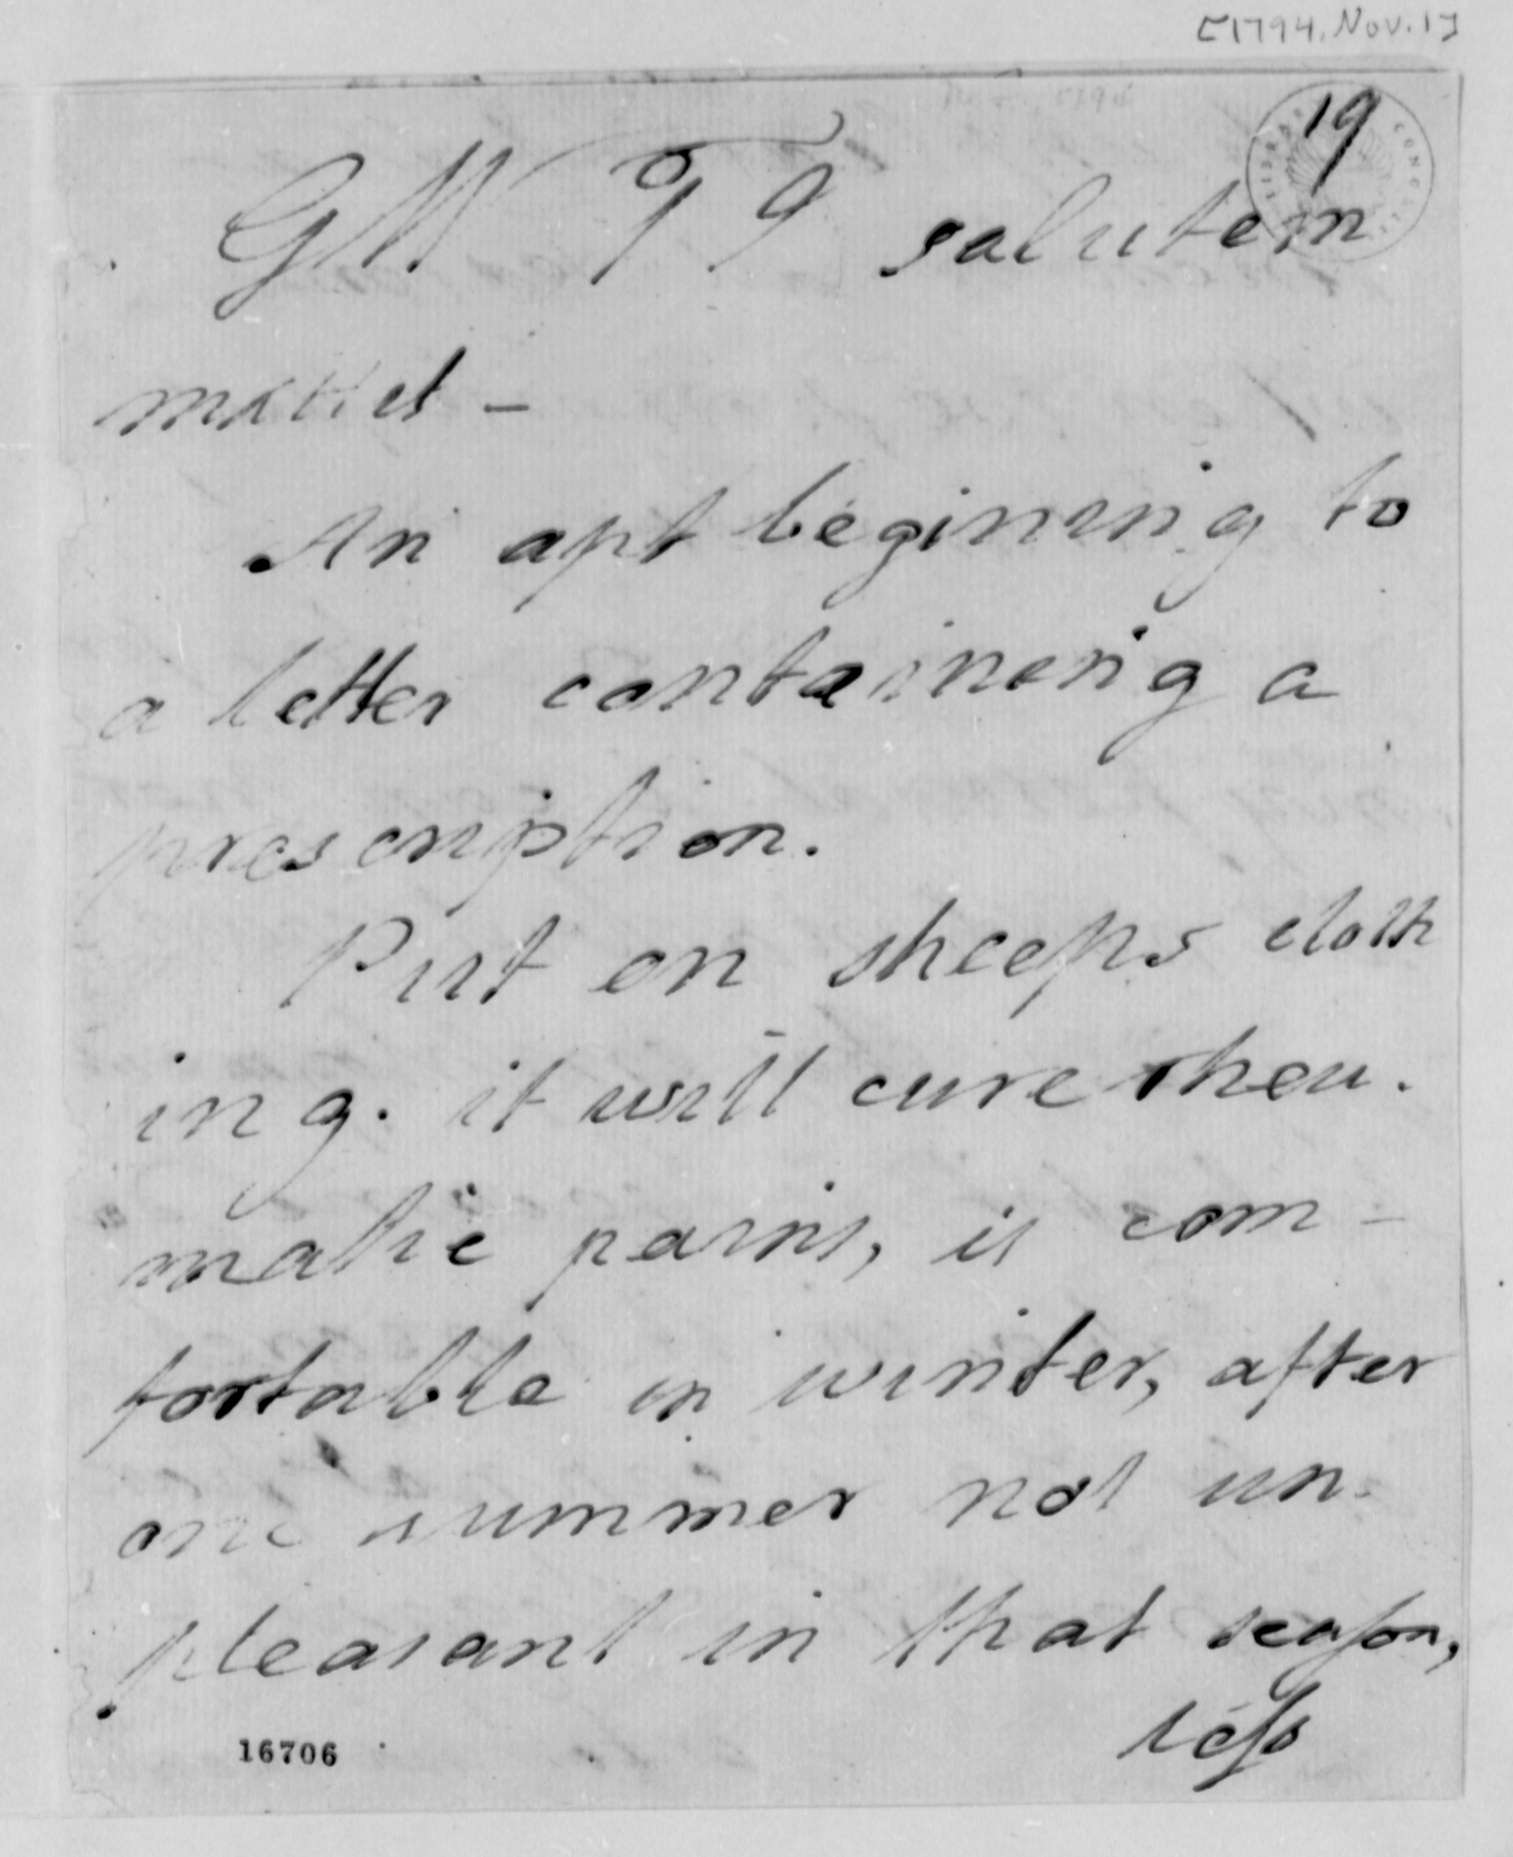 [1794. Nov. 1]
19
GW T J salutem
mittit –
An apt begining to
a letter containing a
prescription.
Put on sheeps cloth
ing. it will cure rheu.
matic pains, is com –
fortable in winter, after
one summer not un.
pleasant in that season,
less
16706